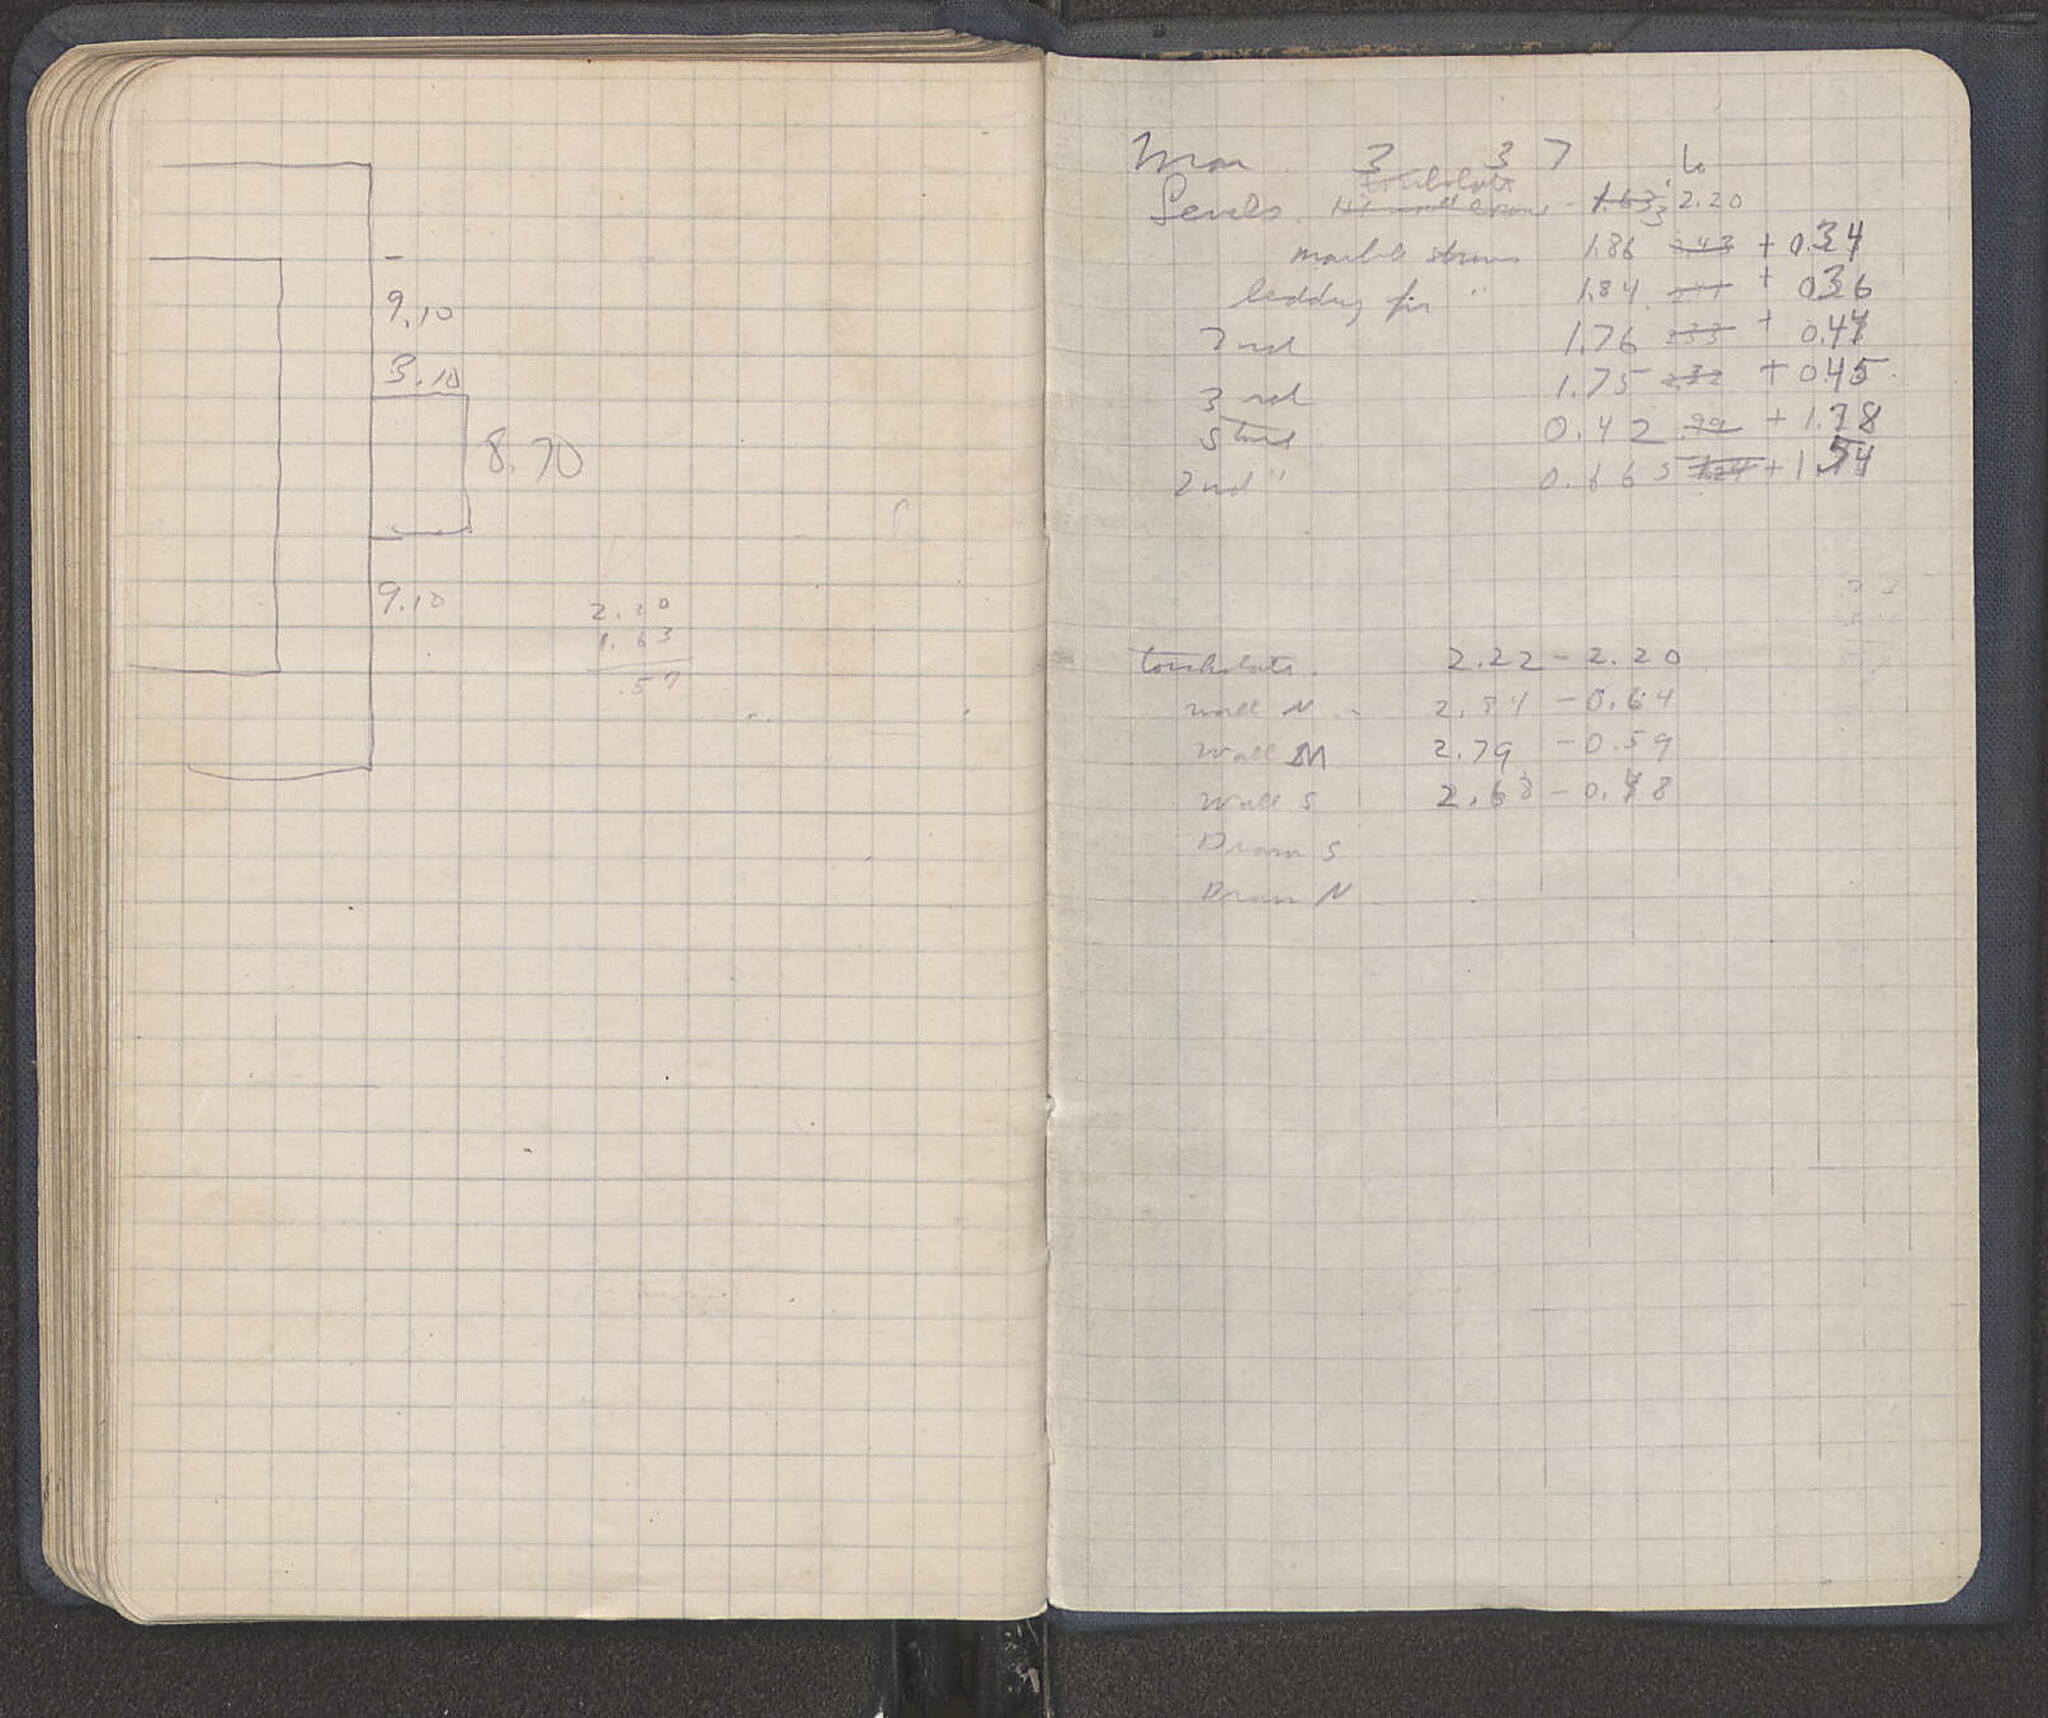 9.10
3.10
8.70
9.10
2.20
1.63
.57
Mar. 3 37
Levels. 1.63 2.20
marble 1.86 2.43 + 0.34
bedding for " 1.84 2.41 + 036
2nd 1.76 2.33 + 0.44
3rd 1.75 2.32 + 0.45
0.42 .99 + 1.78
2nd " 0.665 1.24 + 1.54
2.22 - 2.20
wall N 2.84 - 0.64
wall M 2.79 - 0.59
wall S 2.68 - 0.48
Drain S
Drain N